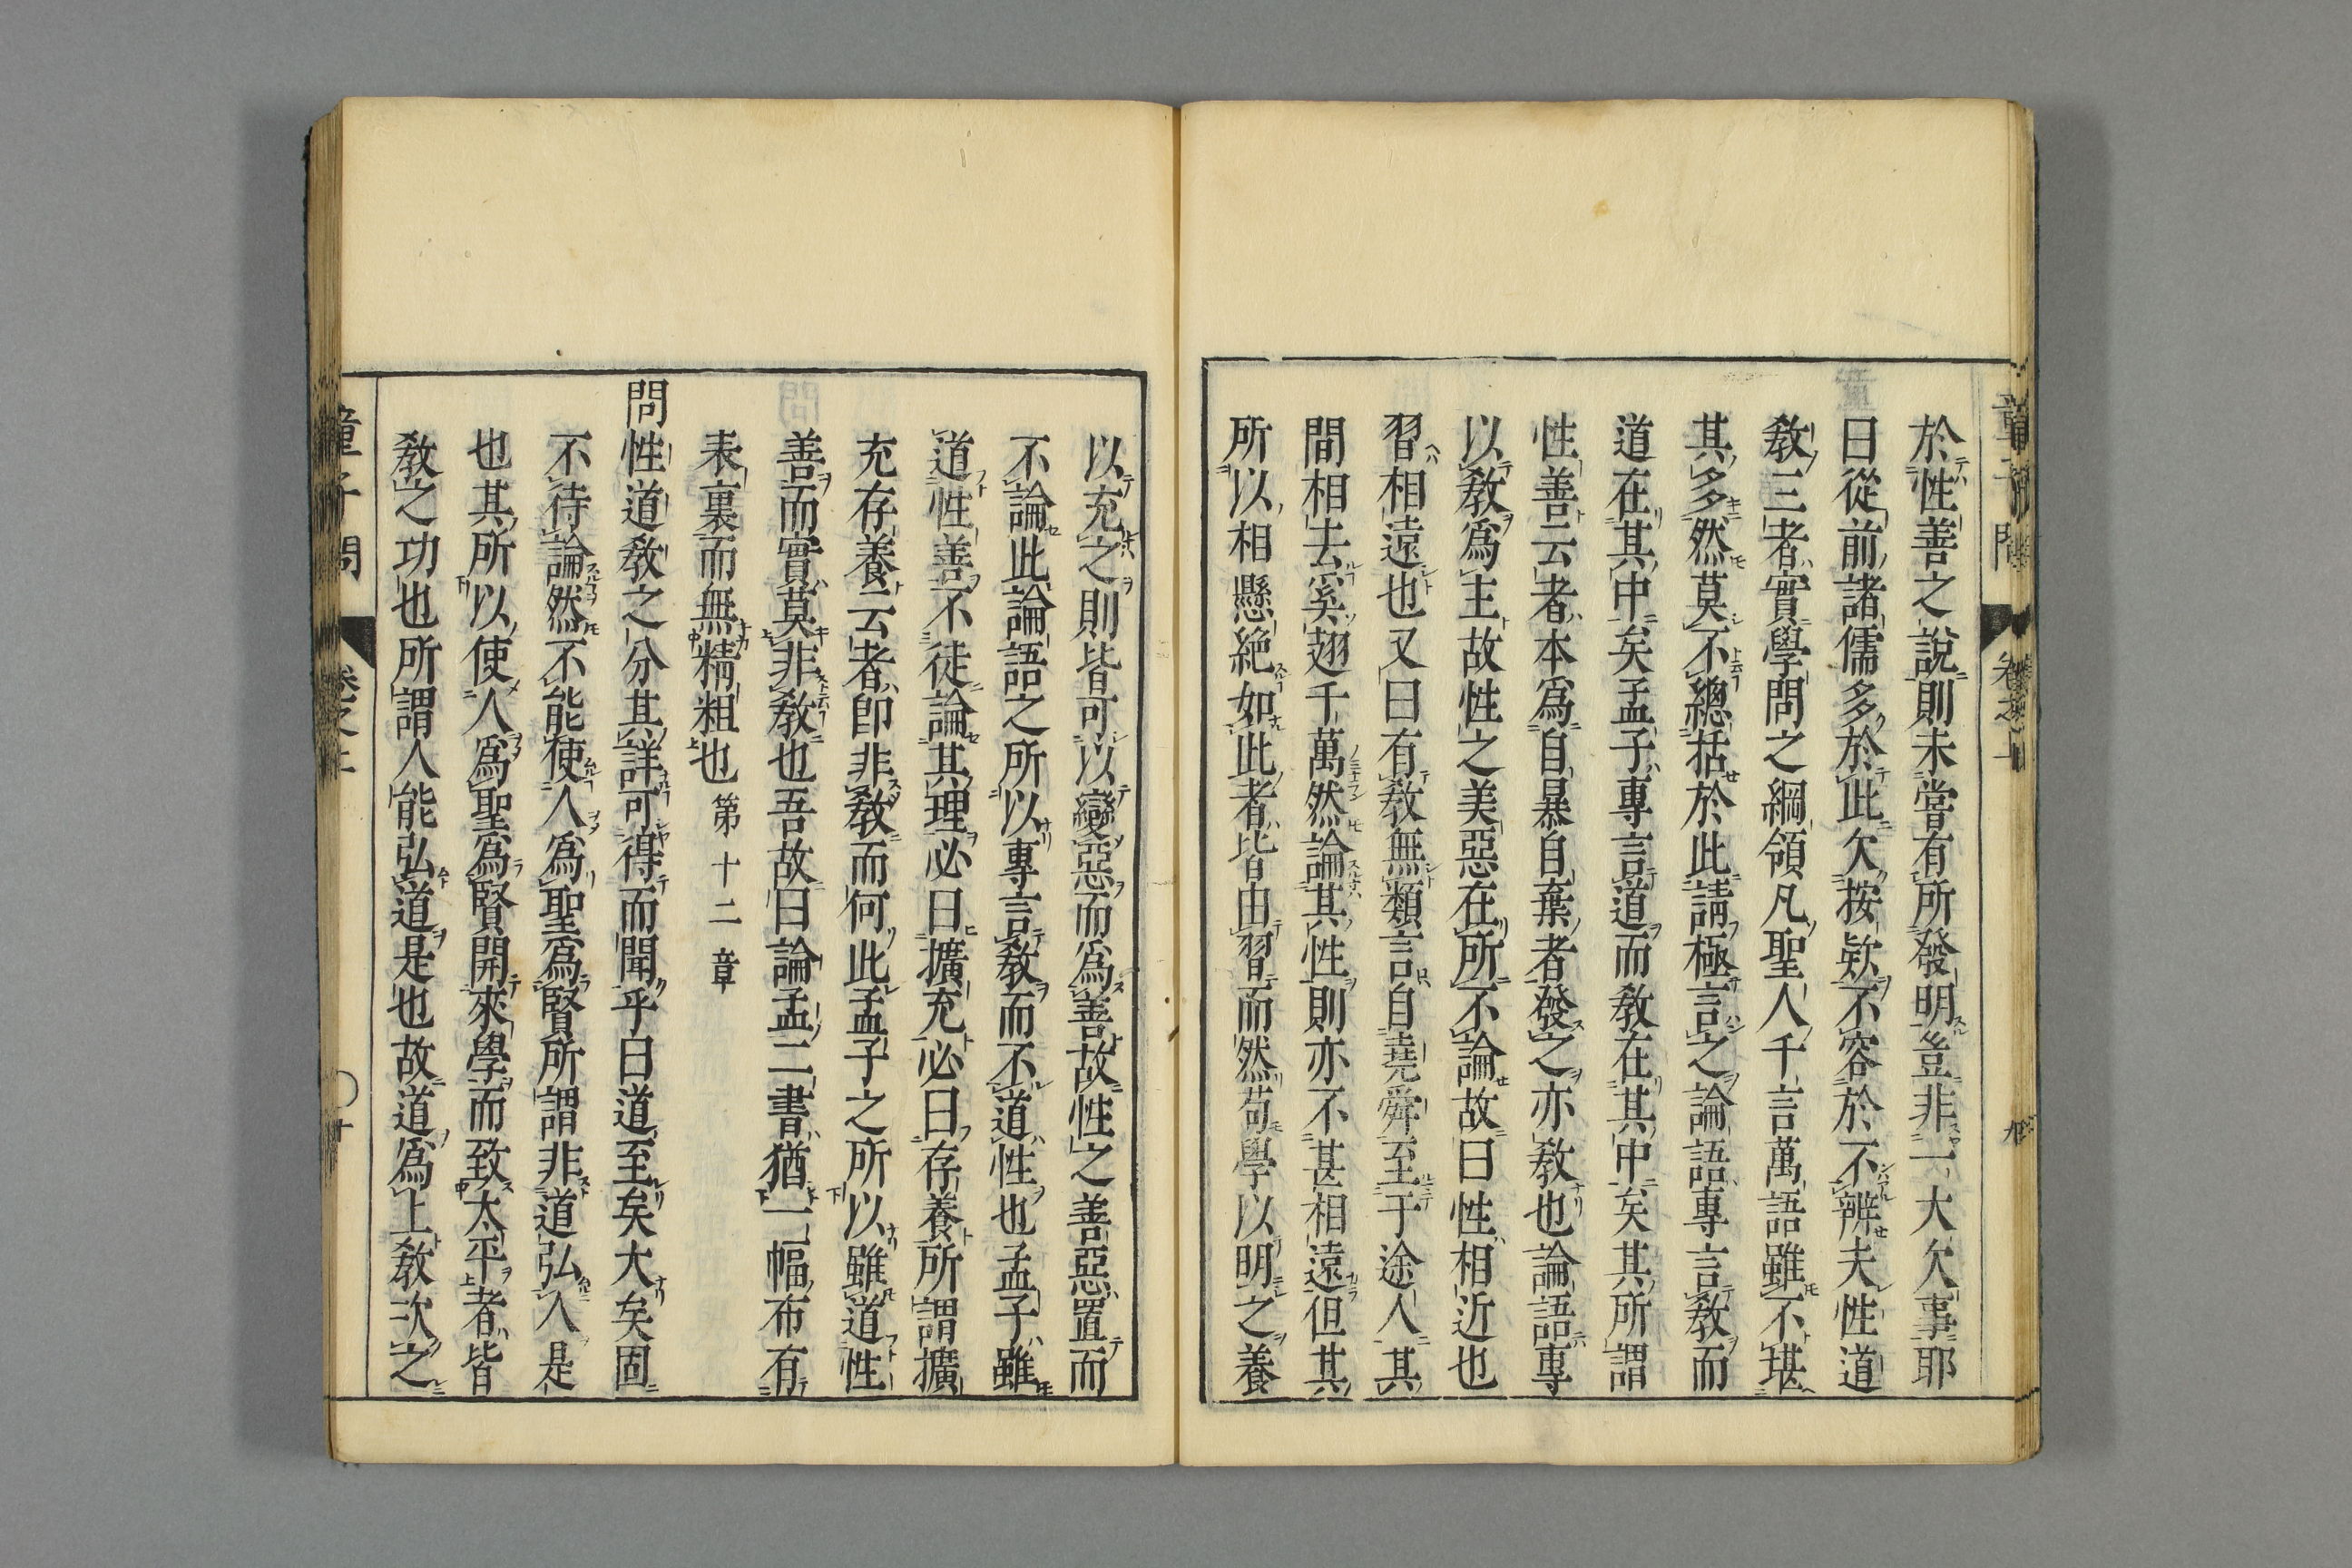 於性善之說則未嘗有所發明豈非一大欠事耶
曰從前諸儒多於此欠按欵不容於不辨夫性道
敎三者實學問之綱領凡聖人千言萬語雖不堪
其多然莫不總括於此請極言之論語專言敎而
道在其中矣孟子專言道而敎在其中矣其所謂
性善云者本爲自暴自棄者發之亦敎也論語專
以敎爲主故性之美惡在所不論故曰性相近也
習相遠也又曰有敎無類言自堯舜至于途人其
間相去奚翅千萬然論其性則亦不甚相遠但其
所以相懸絶如此者皆由習而然苟學以明之養
以充之則皆可以變惡而爲善故性之善惡置而
不論此論語之所以專言敎而不道性也孟子雖
道性善不徒論其理必曰擴充必曰存養所謂擴
充存養云者卽非敎而何此孟子之所以雖道性
善而實莫非敎也吾故曰論孟二書猶一幅布有
表裏而無精粗也 第十二章
問性道敎之分其詳可得而聞乎曰道至矣大矣固
不待論然不能使人爲聖爲賢所謂非道弘人是
也其所以使人爲聖爲賢開來學而致太平者皆
敎之功也所謂人能弘道是也故道爲上敎次之
童子問 卷之上 十